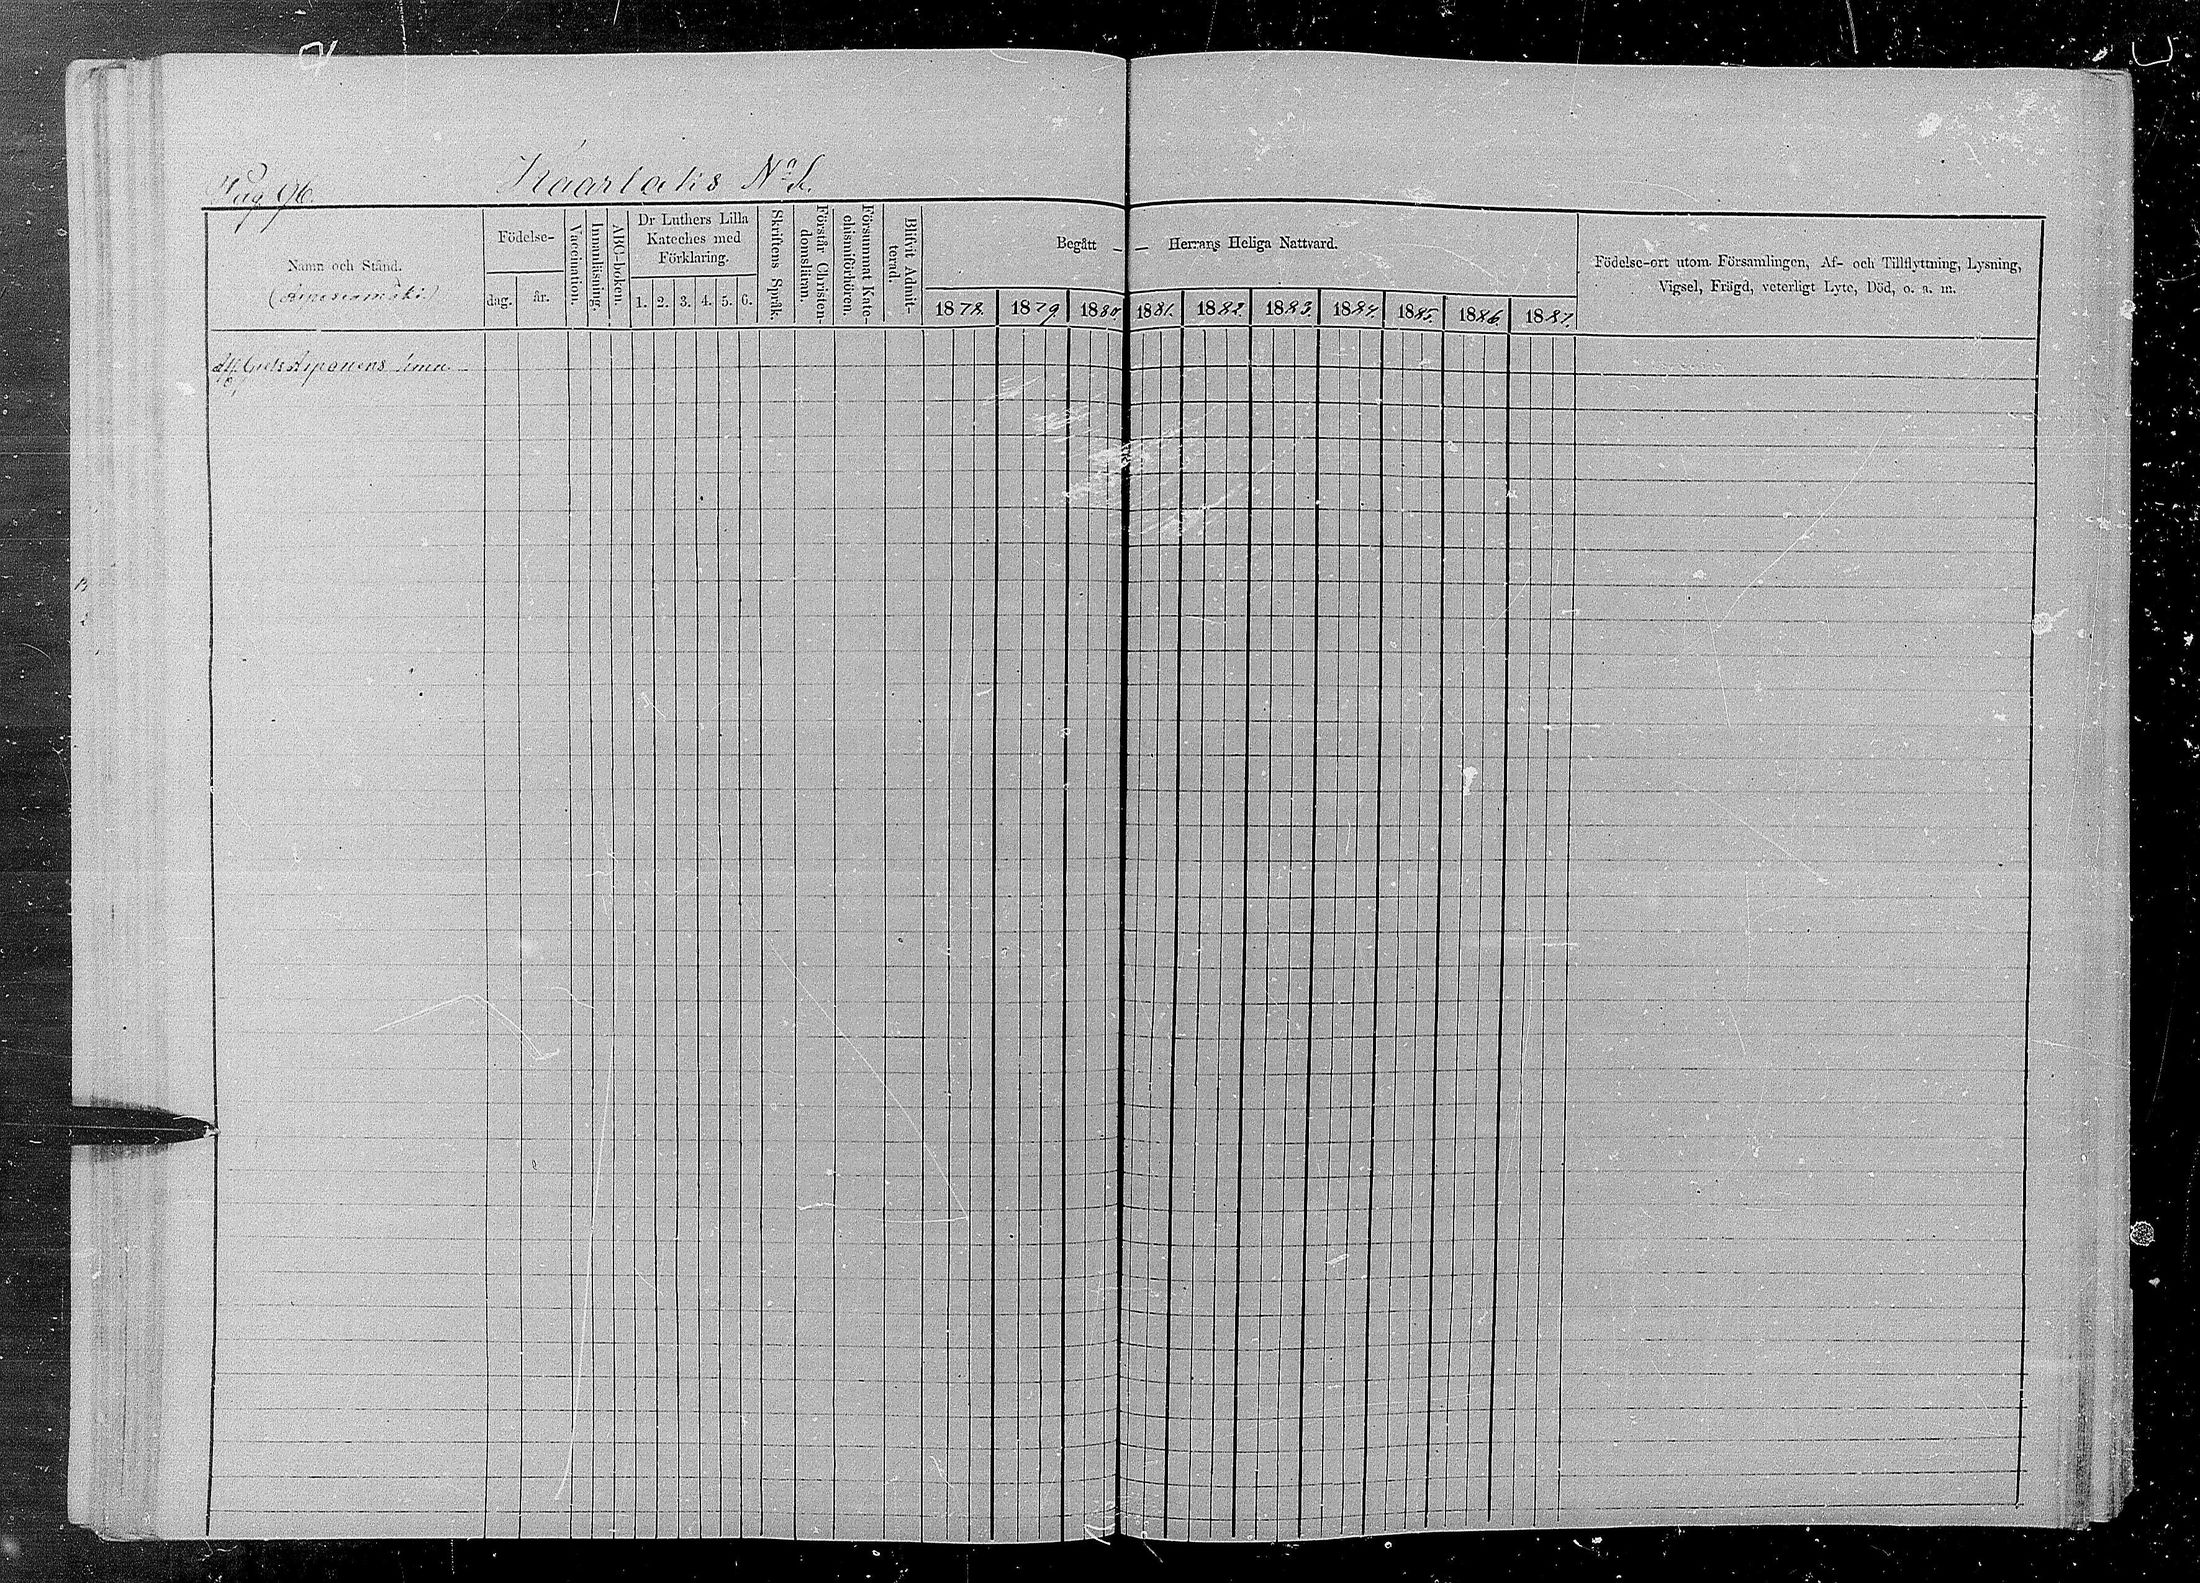 Pag 96.
Kaarlaks No
Namn och Stånd.
Födelse-
dag.
år.
Vaccination.
Innanläsning.
ABC-boken.
Dr Luthers Lilla
Kateches med
Förklaring.
1. 2. 3. 4. 5. 6.
Skriftens Språk.
Förstår Christen-
domsläran.
Försummat Kate-
chismiförhören.
Blifvit Admit-
terad.
Begått — — Herrans Heliga Nattvard.
1878. 1879. 1880. 1881. 1882. 1883. 1884. 1885. 1886. 1887.
Födelse-ort utom Församlingen, Af- och Tillflyttning, Lysning,
Vigsel, Frägd, veterligt Lyte, Död, o. a. m.